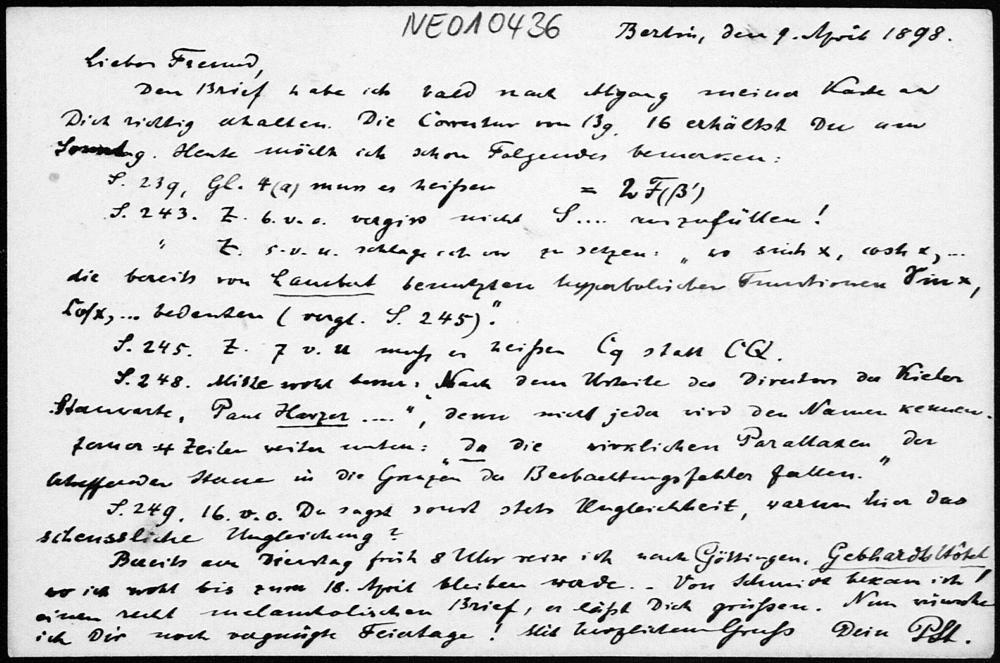 NE010436
Berlin, den 9. April 1898.
Lieber Freund,
Den Brief habe ich bald nach Abgang meiner Karte an
Dich richtig erhalten. Die Correctur von Bg. 16 erhältst Du am
Sonntag. Heute möcht ich schon Folgendes bemerken:
S. 239, Gl. 4(a) muss es heißen = 2F(β')
S. 243. Z. 6. v. o. vergiss nicht S.... auszufüllen!
" Z. 5. v. u. schlage ich vor zu setzen: „wo sinh x, cosh x, ...
die bereits von Lambert benutzten hyperbolischen Functionen Sin x,
Cos x, ... bedeuten (vergl. S. 245)."
S. 245. Z. 7 v. u muss es heißen Cq statt CQ.
S. 248. Mitte wohl besser: „Nach dem Urteile des Directors der Kieler
Sternwarte, Paul Harzer ....", denn nicht jeder wird den Namen kennen.
ferner 4 Zeilen weiter unten: „da die wirklichen Parallaxen der
betreffenden Sterne in die Grenzen der Beobachtungsfehler fallen."
S. 249, 16. v. o. Du sagst sonst stets Ungleichheit, warum hier das
scheussliche Ungleichung?
Bereits am Dienstag früh 8 Uhr reise ich nach Göttingen, Gebhardts Hôtel,
wo ich wohl bis zum 18. April bleiben werde. - Von Schmidt bekam ich
einen recht melancholischen Brief, er läßt Dich grüßen. Nun wünsche
ich Dir noch vergnügte Feiertage! Mit herzlichem Gruß Dein PSt.